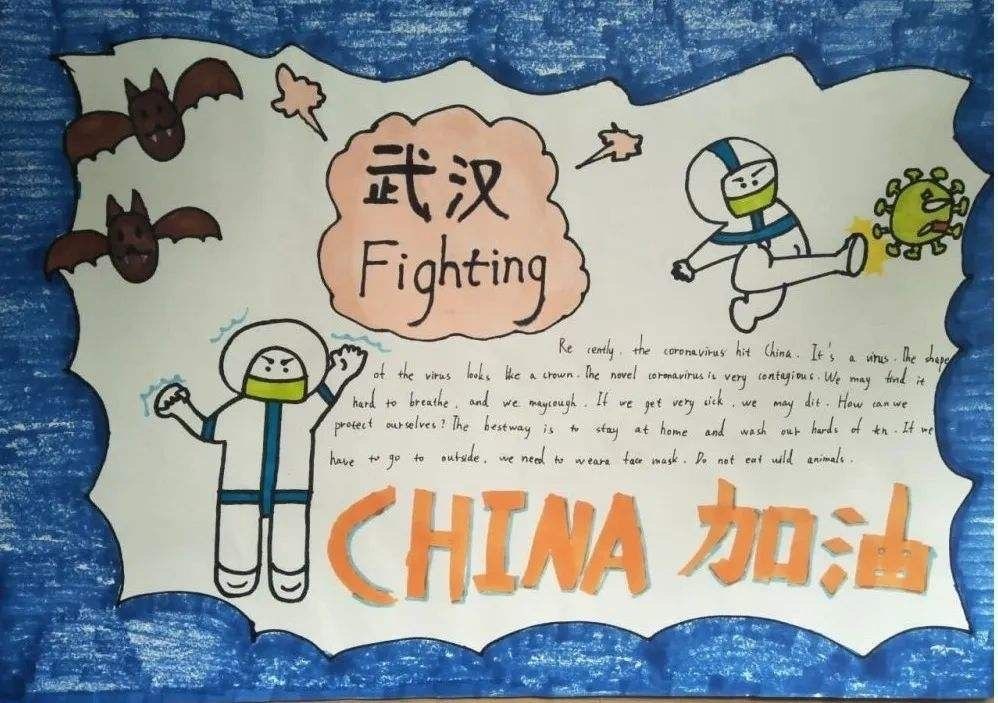 武汉
Fighting
Re cently, the coronavirus hit China. It's a virus. The shape
of the virus looks like a crown. The novel coronavirus is very contagious. We may find it
hard to breathe, and we maycough. If we get very sick, we may dit. How can we
protect ourselves? The bestway is to stay at home and wash our hards of tn. If we
have to go to outside, we need to weara face mask. Do not eat wild animals.
CHINA 加油